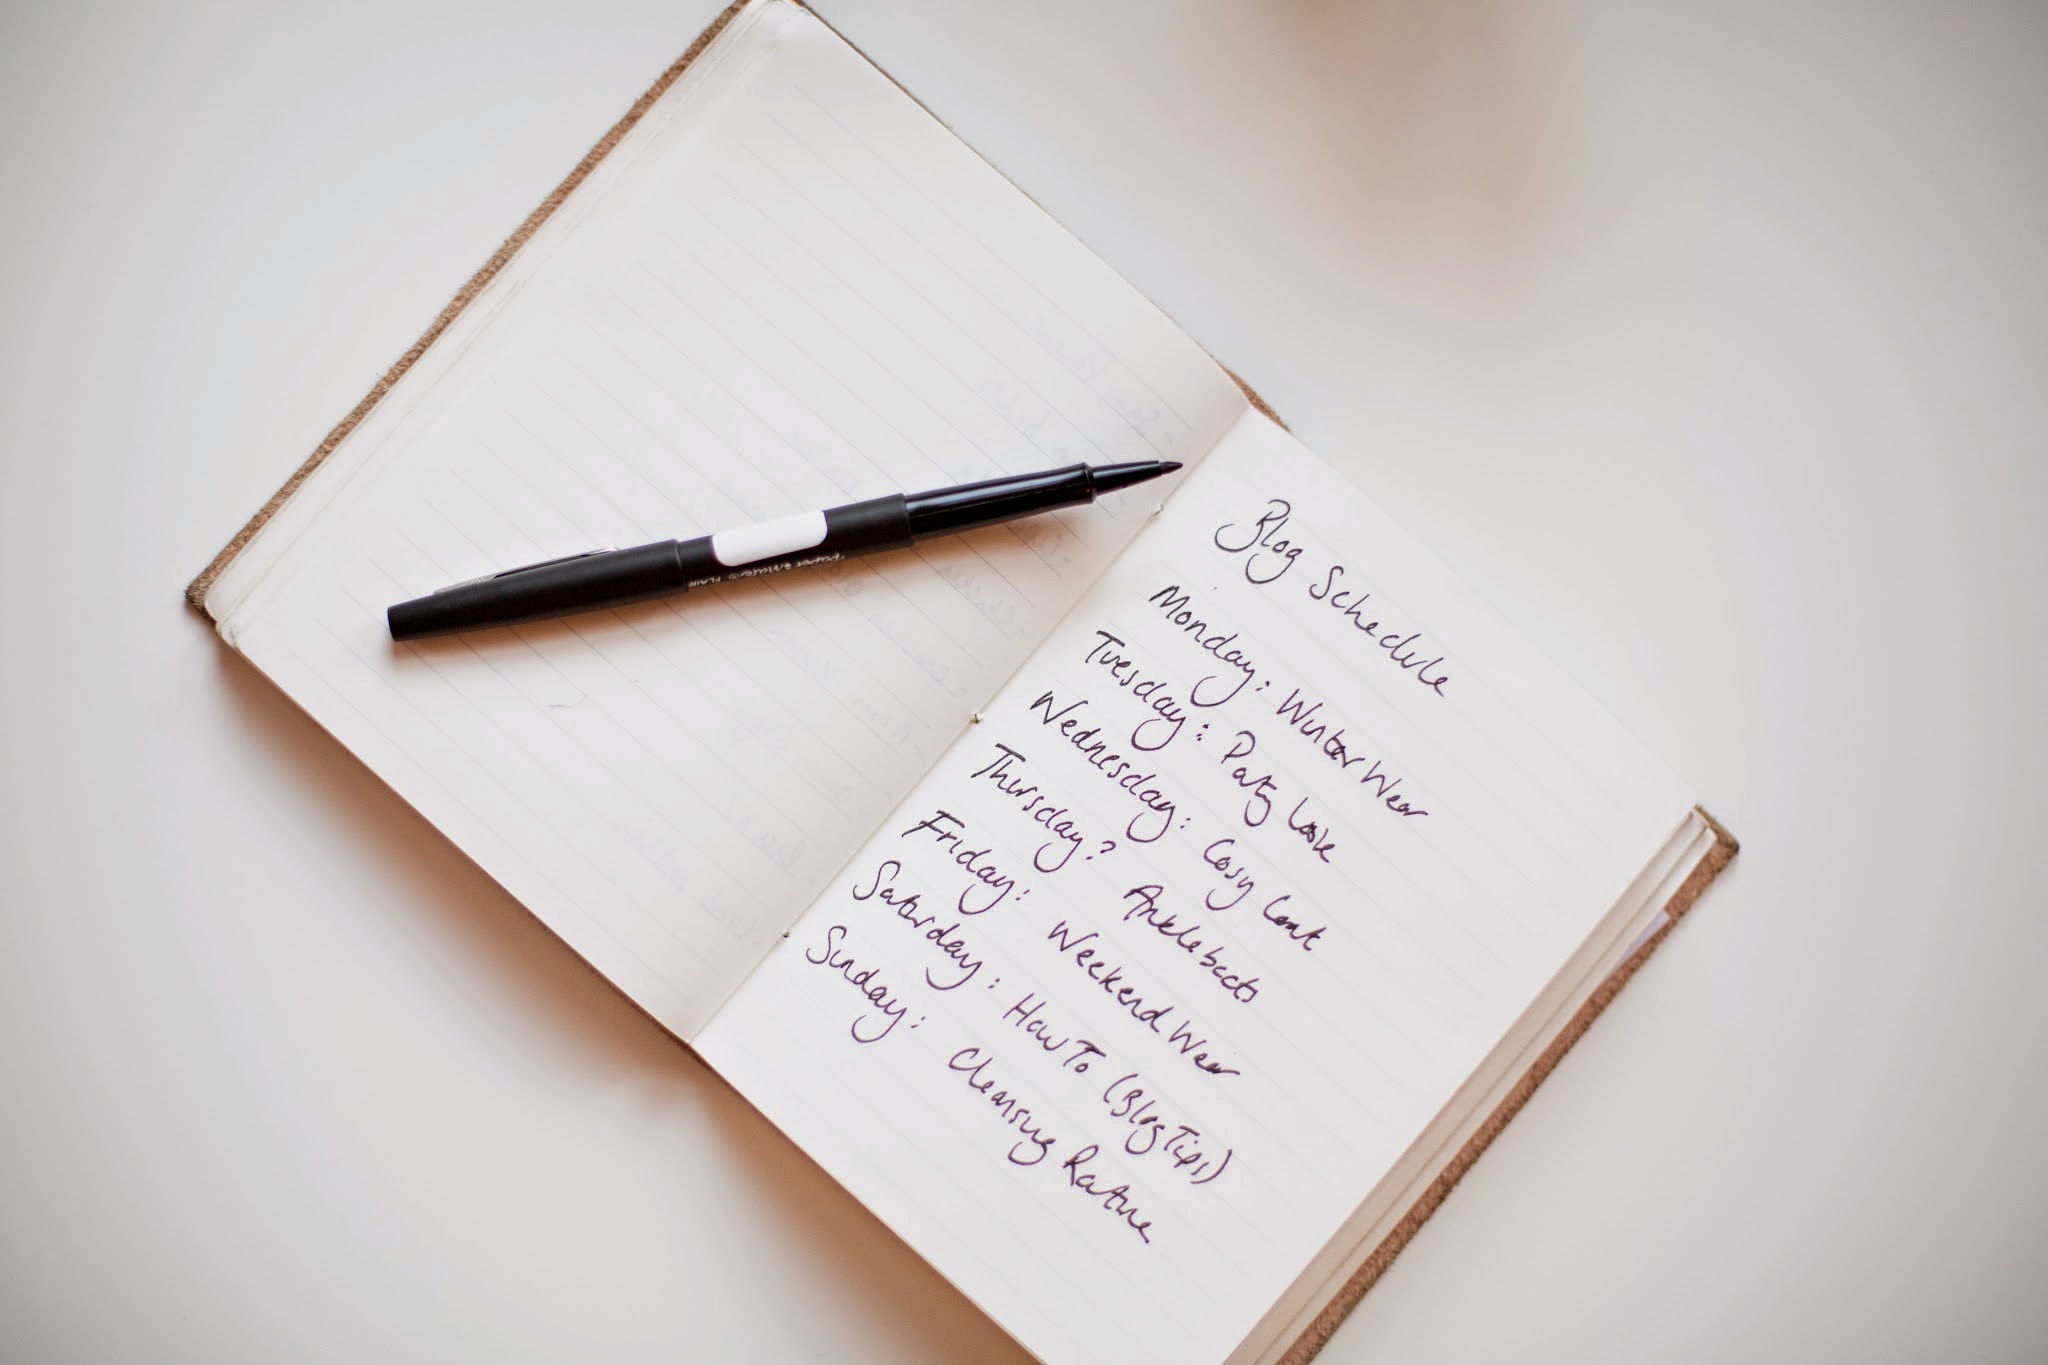 Blog Schedule
Monday: Winter Wear
Tuesday: Party Look
Wednesday: Cosy Coat
Thursday? Ankleboots
Friday: Weekend Wear
Saturday: How To (Blog Tips)
Sunday: Cleansing Routine
Paper Mate FLAIR